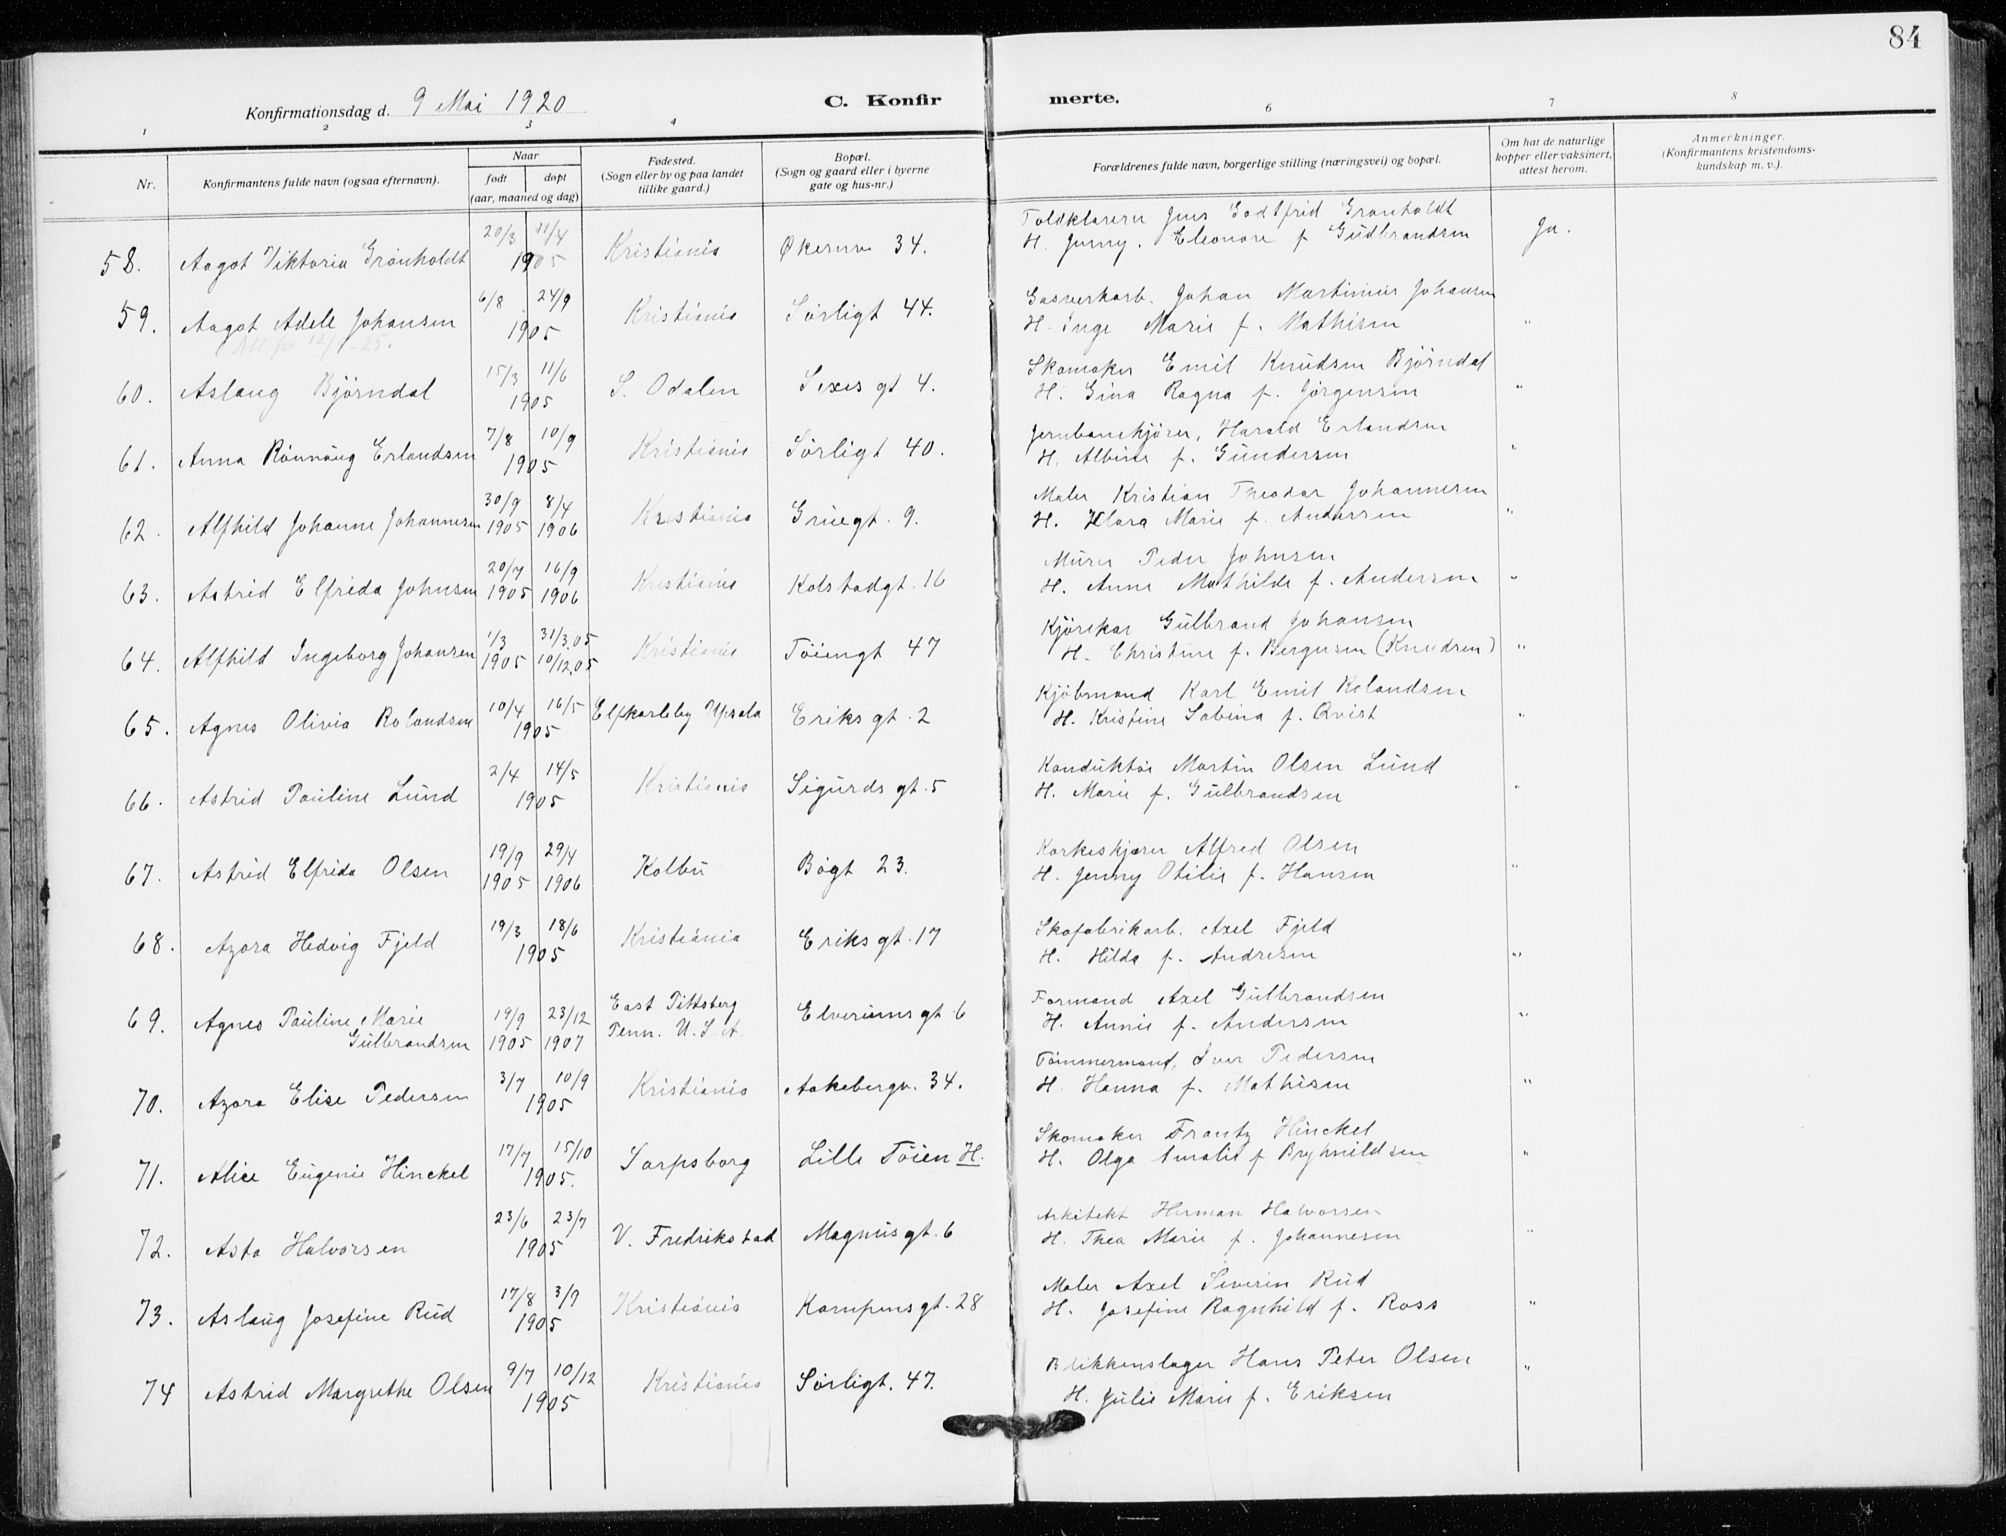 84
Konfirmationsdag d. 9 Mai 1920
C. Konfirmerte.
1 2 3 4 6 7 8
Nr.
Konfirmantens fulde navn (ogsaa efternavn).
Naar
født døpt
(aar, maaned og dag)
Fødested.
(Sogn eller by og paa landet
tillike gaard.)
Bopæl.
(Sogn og gaard eller i byerne
gate og hus-nr.)
Forældrenes fulde navn, borgerlige stilling (næringsvei) og bopæl.
Om hat de naturlige
kopper eller vaksinert,
attest herom.
Anmerkninger.
(Konfirmantens kristendoms-
kundskap m. v.).
20/3 11/4 Toldklarerer Jens Godtfrid Grönholdt
58. Aagot Viktoria Grönholdt 1905 Kristiania Økernv 34. H. Jenny. Eleonore f Gudbrandsen Ja.
6/8 24/9 Gasverkarb. Johan Martinius Johansen
59. Aagot Adele Johansen 1905 Kristiania Sörligt 44. H. Inge Marie f. Mathisen "
15/3 11/6 Skomaker Emil Knudsen Björndal
60. Aslaug Björndal 1905 S. Odalen Sexes gt 4. H. Gina Ragna f. Jörgensen "
7/8 10/9 Jernbanekjører, Harald Erlandsen
61. Anna Rönnaug Erlandsen 1905 Kristiania Sörligt 40. H. Albine f. Gundersen "
30/9 8/4 Maler Kristian Theodor Johannesen
62. Alfhild Johanne Johannesen 1905 1906 Kristiania Gruegt. 9. H. Klara Marie f. Andersen "
20/7 16/9 Murer Peder Johnsen
63. Astrid Elfrida Johnsen 1905 1906 Kristiania Kolstadgt. 16 H. Anne Mathilde f. Andersen "
1/3 31/3.05 Kjörekar Gulbrand Johansen
64. Alfhild Ingeborg Johansen 1905 10/12.05 Kristiania Töiengt 47 H. Christine f. Bergersen (Knudsen) "
10/4 16/5 Kjöbmand Karl Emil Rolandsen
65. Agnes Olivia Rolandsen 1905 Elfkarleby Upsala Eriks gt. 2 H. Kristine Sabina f. Qvist "
2/4 14/5 Konduktör Martin Olsen Lund
66. Astrid Pauline Lund 1905 Kristiania Sigurds gt. 5 H. Marie f. Gulbrandsen "
19/9 29/4 Korkeskjærer Alfred Olsen
67. Astrid Elfrida Olsen 1905 1906 Kolbu Bögt 23. H. Jenny Otilie f. Hansen "
19/3 18/6 Skofabrikarb. Axel Fjeld
68. Azora Hedvig Fjeld 1905 Kristiania Eriks gt. 17 H. Hilda f. Andresen "
East Pittsberg Formand Axel Gulbrandsen
69. Agnes Pauline Marie 19/9 23/12 Penn. U.S.A. Elverumsgt 6 H. Annie f. Andersen "
Gulbrandsen 1905 1907
3/7 10/9 Tömmermand, Iver Pedersen
70. Azora Elise Pedersen 1905 Kristiania Aakebergv. 34. H. Hanna f. Mathisen "
17/7 15/10 Skomaker Frantz Hinckel
71. Alice Eugenie Hinckel 1905. Sarpsborg Lille Töien H. H. Olga Amalie f Brynhildsen "
23/6 23/7 Arkitekt Herman Halvorsen
72. Asta Halvorsen 1905 V. Fredrikstad Magnusgt. 6 H. Thea Marie f. Johannesen "
17/8 3/9 Maler Axel Severin Rud
73. Aslaug Josefine Rud 1905 Kristiania Kampensgt. 28 H. Josefine Ragnhild f. Ross "
9/7 10/12 Blikkenslager Hans Peter Olsen "
74 Astrid Margrethe Olsen 1905 Kristiania Sörligt. 47. H. Julie Marie f. Eriksen